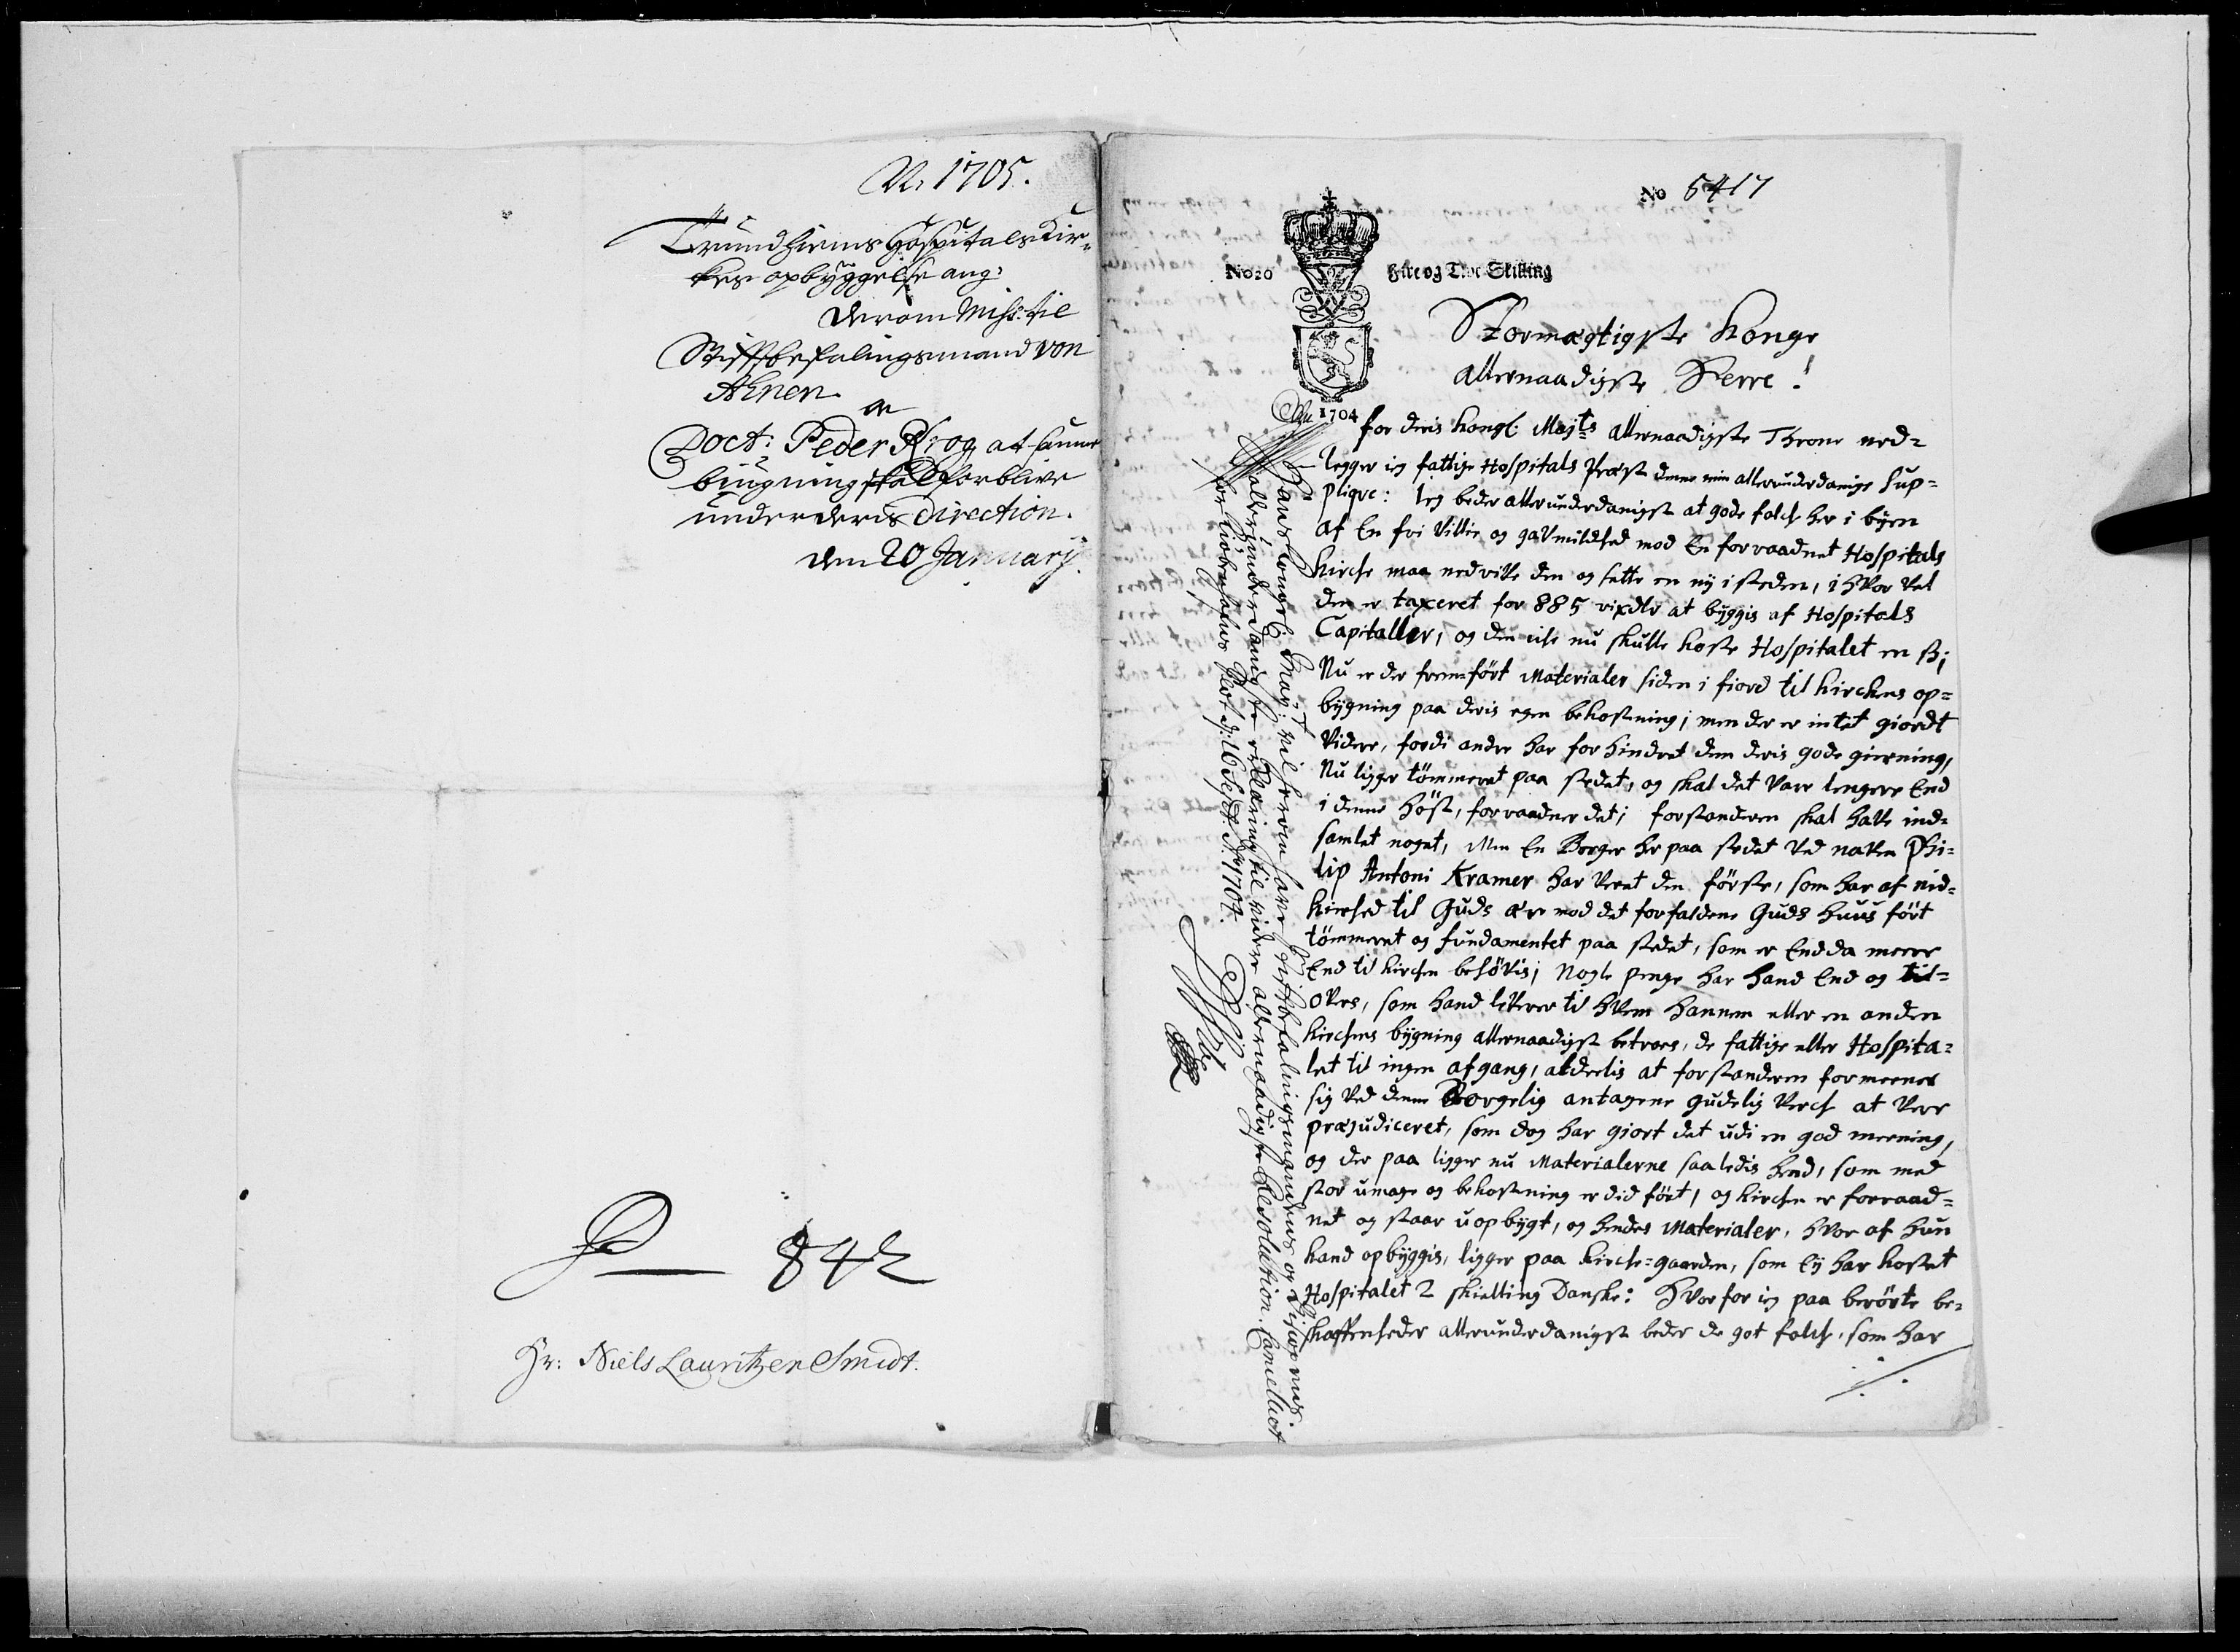 N. 1705.
Trundhiems Hospitals Kir-
kes opbÿggelse ang:
derom Miss: til
Stifftbefalingsmand von
Ahnen
oc
Doct: Peder Krog, at samme
bÿugning skal forblive
under deris Direction.
den 20 Januarÿ.
842
Hr: Niels Lauritzen Smidt.
No 5417
No 20 Fire og Tive Skilling
1704
Stormægtigste Konge
Allernaadigste Herre!
for deris Kongl: Maj:ts allernaadigste Throne ned=
legger ieg fattige Hospitals Præst denne min allerunderdanige sup=
pliqve: Ieg beder allerunderdanigst at gode folch her i bÿen
af En fri Villie og gavmildhed mod En forraadnet Hospitals
Kirche maa nedrive den og sette en nÿ i steden, i hvor Vel
den er taxeret for 885 rixdlr at bÿggis af Hospitals
Capitaller, og den eÿ nu skulle koste Hospitalet en ß;
Nu er der fremført Materialer siden i fiord til Kirchens op=
bÿgning paa deris egen bekostning; men der er intet giordt
Videre, fordi andre har forhindret dem deris gode gierning,
Nu ligger tømmeret paa stedet, og skal det Vare lengere End
i denne høst, forraadner det; forstanderen skal have ind=
samlet noget, Men En Borger her paa stedet Ved naVn Phi=
lip Antoni Kramer har Veret den første, som har af nid=
kierhed til Guds ære mod det forfaldene Guds huus ført
tømmeret og fundamentet paa stedet, som er Endda meere
End til Kirchen behøVis; Nogle penge har hand End og til=
oVers, som hand leVerer til hVem hannem eller en anden
Kirchens bÿgning allernaadigst betroes, de fattige eller Hospita=
let til ingen afgang, aldeelis at forstanderen formeener
sig Ved denne Borgelig antagene gudelig Verch at Vere
præjudiceret, som dog har giort det udi en god meening,
og der paa ligger nu Materialerne saaledis hend, som med
stor umage og bekostning er did ført, og Kirchen er forraad=
net og staar uopbÿgt, og hendes Materialer, hVor af hun
kand opbÿggis, ligger paa Kirche=gaarden, som Eÿ har kostet
Hospitalet 2 skielling Danske: HVorfor ieg paa berørte be=
skaffenheder allerunderdanigst beder de got folch, som har
Hans Kongl: May:t vil herom have Stiftbefalingsmandens og Bispens
allerunderdanigste erklæring til videre allernaadigste Resolution. Cancelliet
for Kiøbenhafns Slot d: 16 Sept: A: 1704.